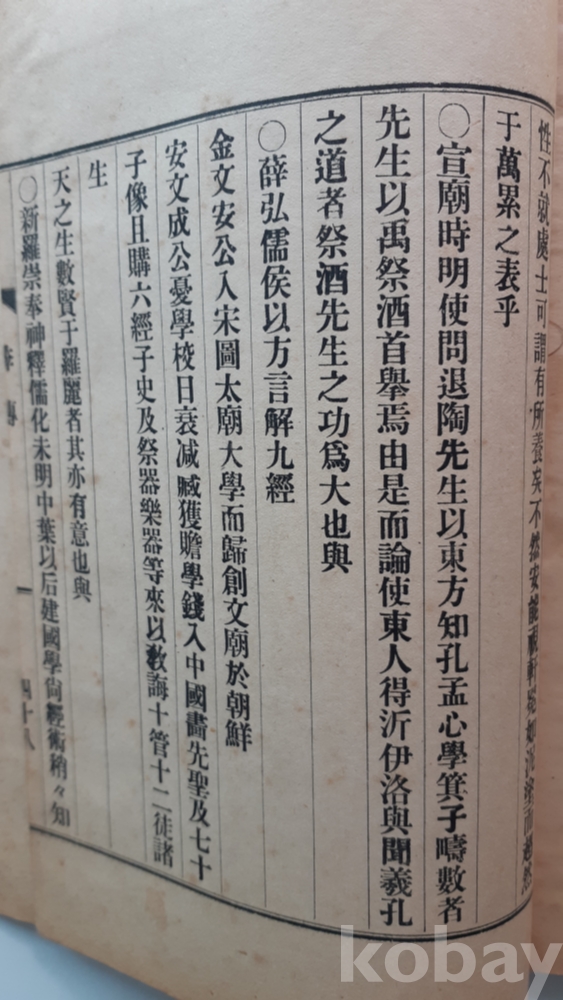 性不就處士可謂有所養矣不然安能視軒冕如泥塗而超然
于萬累之表乎
○宣廟時明使問退陶先生以東方知孔孟心學箕子疇數者
先生以禹祭酒首舉焉由是而論使東人得沂伊洛與聞羲孔
之道者祭酒先生之功爲大也與
○薛弘儒侯以方言解九經
金文安公入宋圖太廟大學而歸創文廟於朝鮮
安文成公憂學校日衰減臧獲贍學錢入中國畵先聖及七十
子像且購六經子史及祭器樂器等來以教誨十管十二徒諸
生
天之生數賢于羅麗者其亦有意也與
○新羅崇奉神釋儒化未明中葉以后建國學尙經術稍々知
四十八
kobay